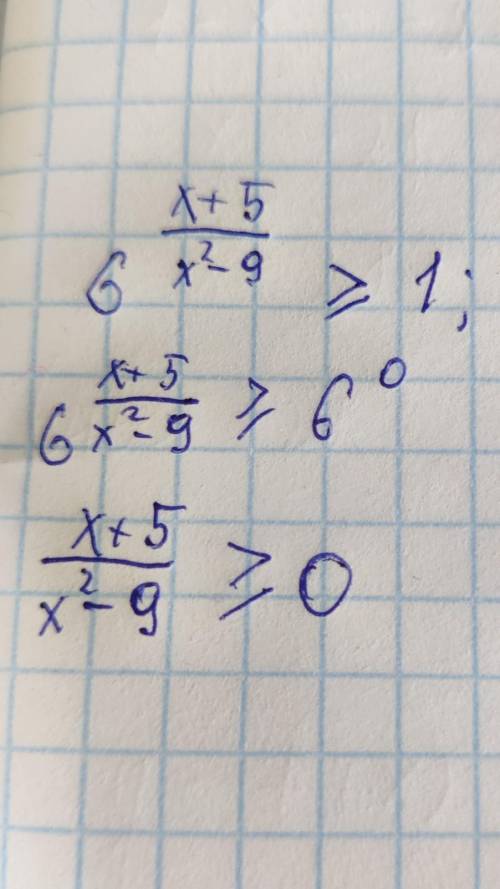 6^((x+5)/(x²-9)) ≥ 1;
6^((x+5)/(x²-9)) ≥ 6⁰
(x+5)/(x²-9) ≥ 0